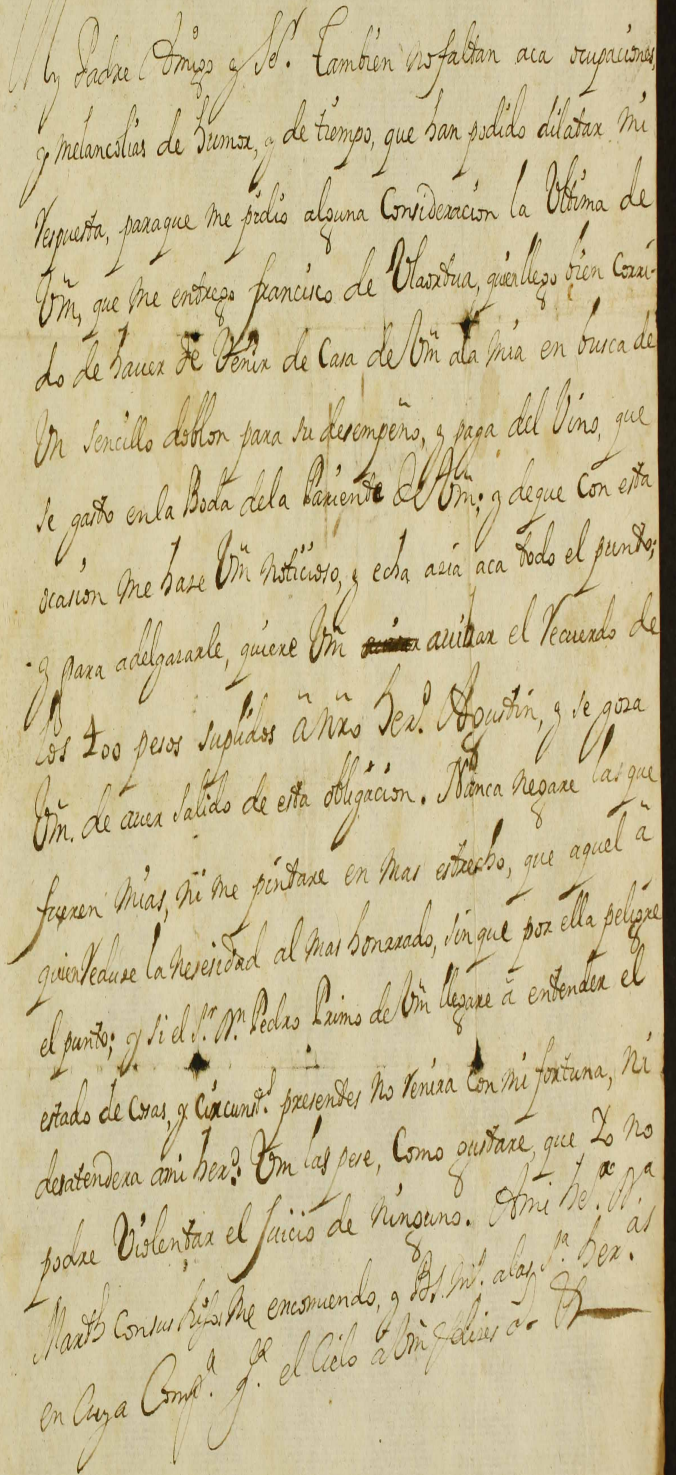 My Padre Amigo y Sr. Tambien no faltan aca ocupaciones,
y melancolias de humor, y de tiempo, que han podido dilatar mi
respuesta, paraque me pidio alguna Consideracion la Ultima de
Vm, que me entrego francisco de Vlaortua, quien llego bien Corri-
do de hauer de Venir de Casa de Vm ala mia en busca de
Un sencillo doblon para su desempeño, y paga del Vino, que
se gasto enla Boda dela Pariente de Vm; y deque Con esta
ocasion me haze Vm noticioso, y echa azia aca todo el punto;
y para adelgazarle, quiere Vm auiuar el recuerdo de
los 400 pesos suplidos â ñro herº. Agustin, y se goza
Vm. de auer salido de esta obligacion. Nunca negare las que
fueren mias, ni me pintare en mas estrecho, que aquel â
quien reduze la nezesidad al mas honrrado, sin que por ella peligre
el punto; y si el Sr. Dn. Pedro Primo de Vm llegare â entender el
estado de Cosas, y Circunstˢ. presentes no renira Con mi fortuna, ni
desatendera ami herº. Vm las pese, Como gustare, que Yo no
podre Violentar el Juicio de ninguno. Ami heʳᵃ. Dª.
Consus hijos me encomiendo, y Bs. ms. alas Sʳᵃˢ. herᵃˢ
en Cuya Compª. gᵈᵉ. el Cielo â Vm felizes aˢ.